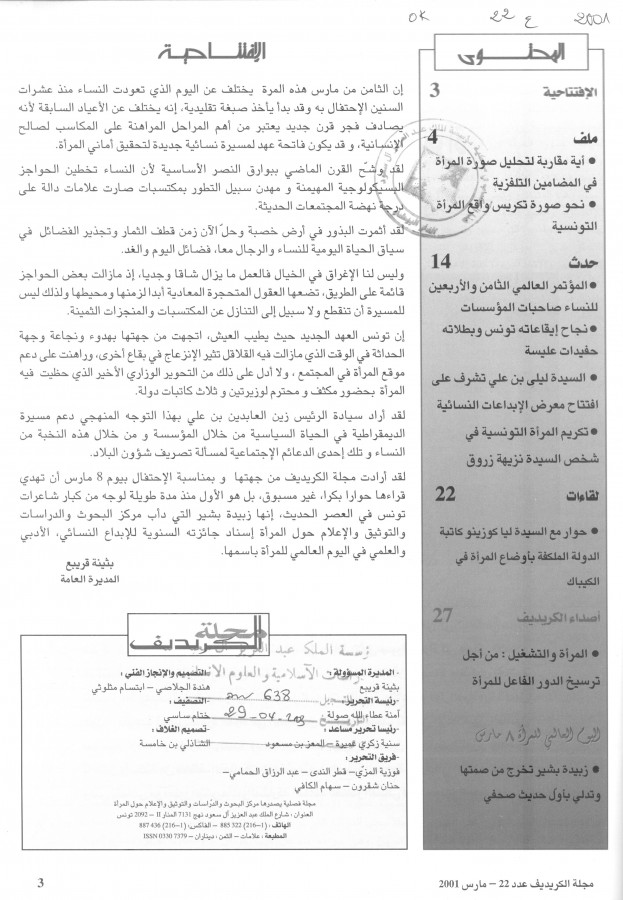 OK 22 ع 2001
المحتوى
الإفتتاحية 3
ملف 4
● أية مقاربة لتحليل صورة المرأة
في المضامين التلفزية
● نحو صورة تكريس واقع المرأة
التونسية
حدث 14
● المؤتمر العالمي الثامن والأربعين
للنساء صاحبات المؤسسات
● نجاح إيقاعاته تونس وبطلاته
حفيدات عليسة
● السيدة ليلى بن علي تشرف على
افتتاح معرض الإبداعات النسائية
● تكريم المرأة التونسية في
شخص السيدة نزيهة زروق
لقاءات 22
● حوار مع السيدة ليا كوزينو كاتبة
الدولة الملكفة بأوضاع المرأة في
الكيباك
أصداء الكريديف 27
● المرأة والتشغيل : من أجل
ترسيخ الدور الفاعل للمرأة
اليوم العالمي للمرأة ٨ مارس
● زبيدة بشير تخرج من صمتها
وتدلي بأول حديث صحفي
الإفتتاحية
إن الثامن من مارس هذه المرة يختلف عن اليوم الذي تعودت النساء منذ عشرات
السنين الإحتفال به وقد بدأ يأخذ صبغة تقليدية، إنه يختلف عن الأعياد السابقة لأنه
يصادف فجر قرن جديد يعتبر من أهم المراحل المراهنة على المكاسب لصالح
الإنسانية، و قد يكون فاتحة عهد لمسيرة نسائية جديدة لتحقيق أماني المرأة.
لقد وشّح القرن الماضي ببوارق النصر الأساسية لأن النساء تخطين الحواجز
السيكولوجية المهيمنة و مهدن سبيل التطور بمكتسبات صارت علامات دالة على
درجة نهضة المجتمعات الحديثة.
لقد أثمرت البذور في أرض خصبة وحلّ الآن زمن قطف الثمار وتجذير الفضائل في
سياق الحياة اليومية للنساء والرجال معا، فضائل اليوم والغد.
وليس لنا الإغراق في الخيال فالعمل ما يزال شاقا وجديا، إذ مازالت بعض الحواجز
قائمة على الطريق، تضعها العقول المتحجرة المعادية أبدا لزمنها ومحيطها ولذلك ليس
للمسيرة أن تنقطع ولا سبيل إلى التنازل عن المكتسبات والمنجزات الثمينة.
إن تونس العهد الجديد حيث يطيب العيش، اتجهت من جهتها بهدوء ونجاعة وجهة
الحداثة في الوقت الذي مازالت فيه القلاقل تثير الإنزعاج في بقاع أخرى، وراهنت على دعم
موقع المرأة في المجتمع ، ولا أدل على ذلك من التحوير الوزاري الأخير الذي حظيت فيه
المرأة بحضور مكثف و محترم لوزيرتين و ثلاث كاتبات دولة.
لقد أراد سيادة الرئيس زين العابدين بن علي بهذا التوجه المنهجي دعم مسيرة
الديمقراطية في الحياة السياسية من خلال المؤسسة و من خلال هذه النخبة من
النساء و تلك إحدى الدعائم الإجتماعية لمسألة تصريف شؤون البلاد.
لقد أرادت مجلة الكريديف من جهتها و بمناسبة الإحتفال بيوم 8 مارس أن تهدي
قراءها حوارا بكرا، غير مسبوق، بل هو الأول منذ مدة طويلة لوجه من كبار شاعرات
تونس في العصر الحديث، إنها زبيدة بشير التي دأب مركز البحوث والدراسات
والتوثيق والإعلام حول المرأة إسناد جائزته السنوية للإبداع النسائي، الأدبي
والعلمي في اليوم العالمي للمرأة باسمها.
بثينة قريبع
المديرة العامة
مجلة
الكريديف
المديرة المسؤولة :
بثينة قريبع
رئيسة التحرير :
آمنة عطاء الله صولة
رئيسا تحرير مساعد :
سنية زكري عميرة – المعز بن مسعود
فريق التحرير :
فوزية المزّي – قطر الندى – عبد الرزاق الحمامي –
حنان شقرون – سهام الكافي
التصميم والإنجاز الفني :
هندة الجلاصي – ابتسام مثلوثي
التصفيف :
ختام ساسي
تصميم الغلاف :
الشاذلي بن خامسة
638
29-04-203
مجلة فصلية يصدرها مركز البحوث والدّراسات والتوثيق والإعلام حول المرأة
العنوان : شارع الملك عبد العزيز آل سعود نهج 7131 المنار II – 2092 تونس
الهاتف : (1–216) 322 885 – الفاكس : (1–216) 436 887
المطبعة : علامات – الثمن : ديناران – ISSN 0330 7379
مجلة الكريديف عدد 22 – مارس 2001
3